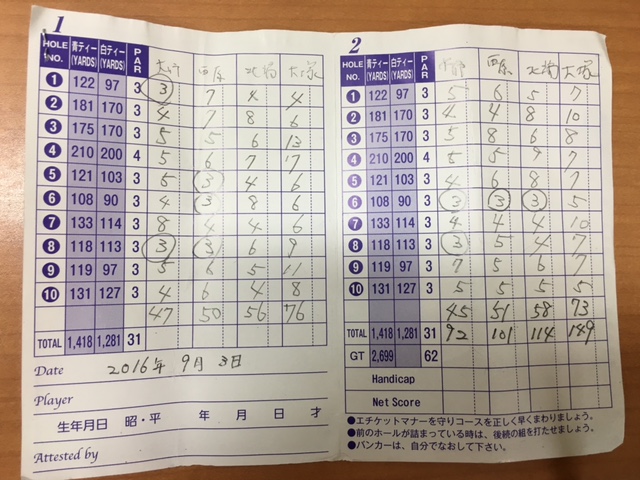 1
HOLE NO. 青ティー (YARDS) 白ティー (YARDS) PAR 西原 北嶋 大塚
1 122 97 3 3 7 4
2 181 170 3 4 7 8 6
3 175 170 3 5 5 6 13
4 210 200 4 5 6 7 7
5 121 103 3 5 3 4 6
6 108 90 3 4 3 8 6
7 133 114 3 8 4 4 6
8 118 113 3 3 3 6 9
9 119 97 3 5 6 5 11
10 131 127 3 4 6 4 8
47 50 56 76
TOTAL 1,418 1,281 31
Date 2016年 9月 3日
Player
生年月日 昭・平 年 月 日 才
Attested by
2
HOLE NO. 青ティー (YARDS) 白ティー (YARDS) PAR 西原 北嶋 大塚
1 122 97 3 5 6 5 7
2 181 170 3 4 4 8 10
3 175 170 3 5 8 6 8
4 210 200 4 5 7
5 121 103 3 4 6 8 7
6 108 90 3 3 3 3 5
7 133 114 3 4 4 4 10
8 118 113 3 3 5 4 7
9 119 97 3 7 5 6 7
10 131 127 3 5 5 5 5
45 51 58 73
TOTAL 1,418 1,281 31 92 101 114 149
GT 2,699 62
Handicap
Net Score
●エチケットマナーを守りコースを正しく早くまわりましょう。
●前のホールが詰まっている時は、後続の組を打たせましょう。
●バンカーは、自分でなおして下さい。